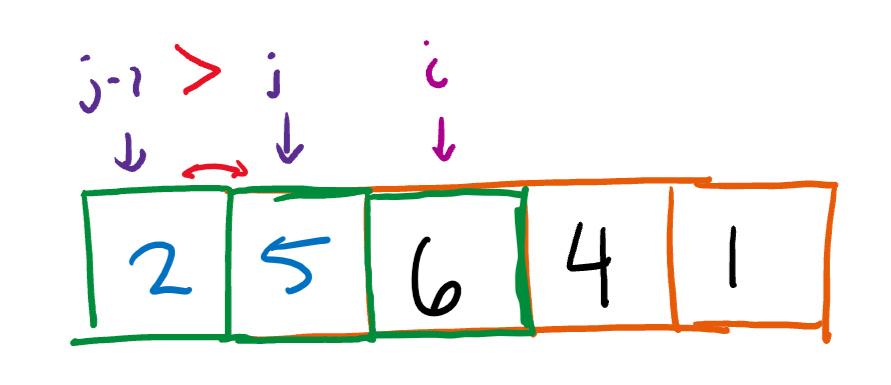 j-1 > j i
2 5 6 4 1